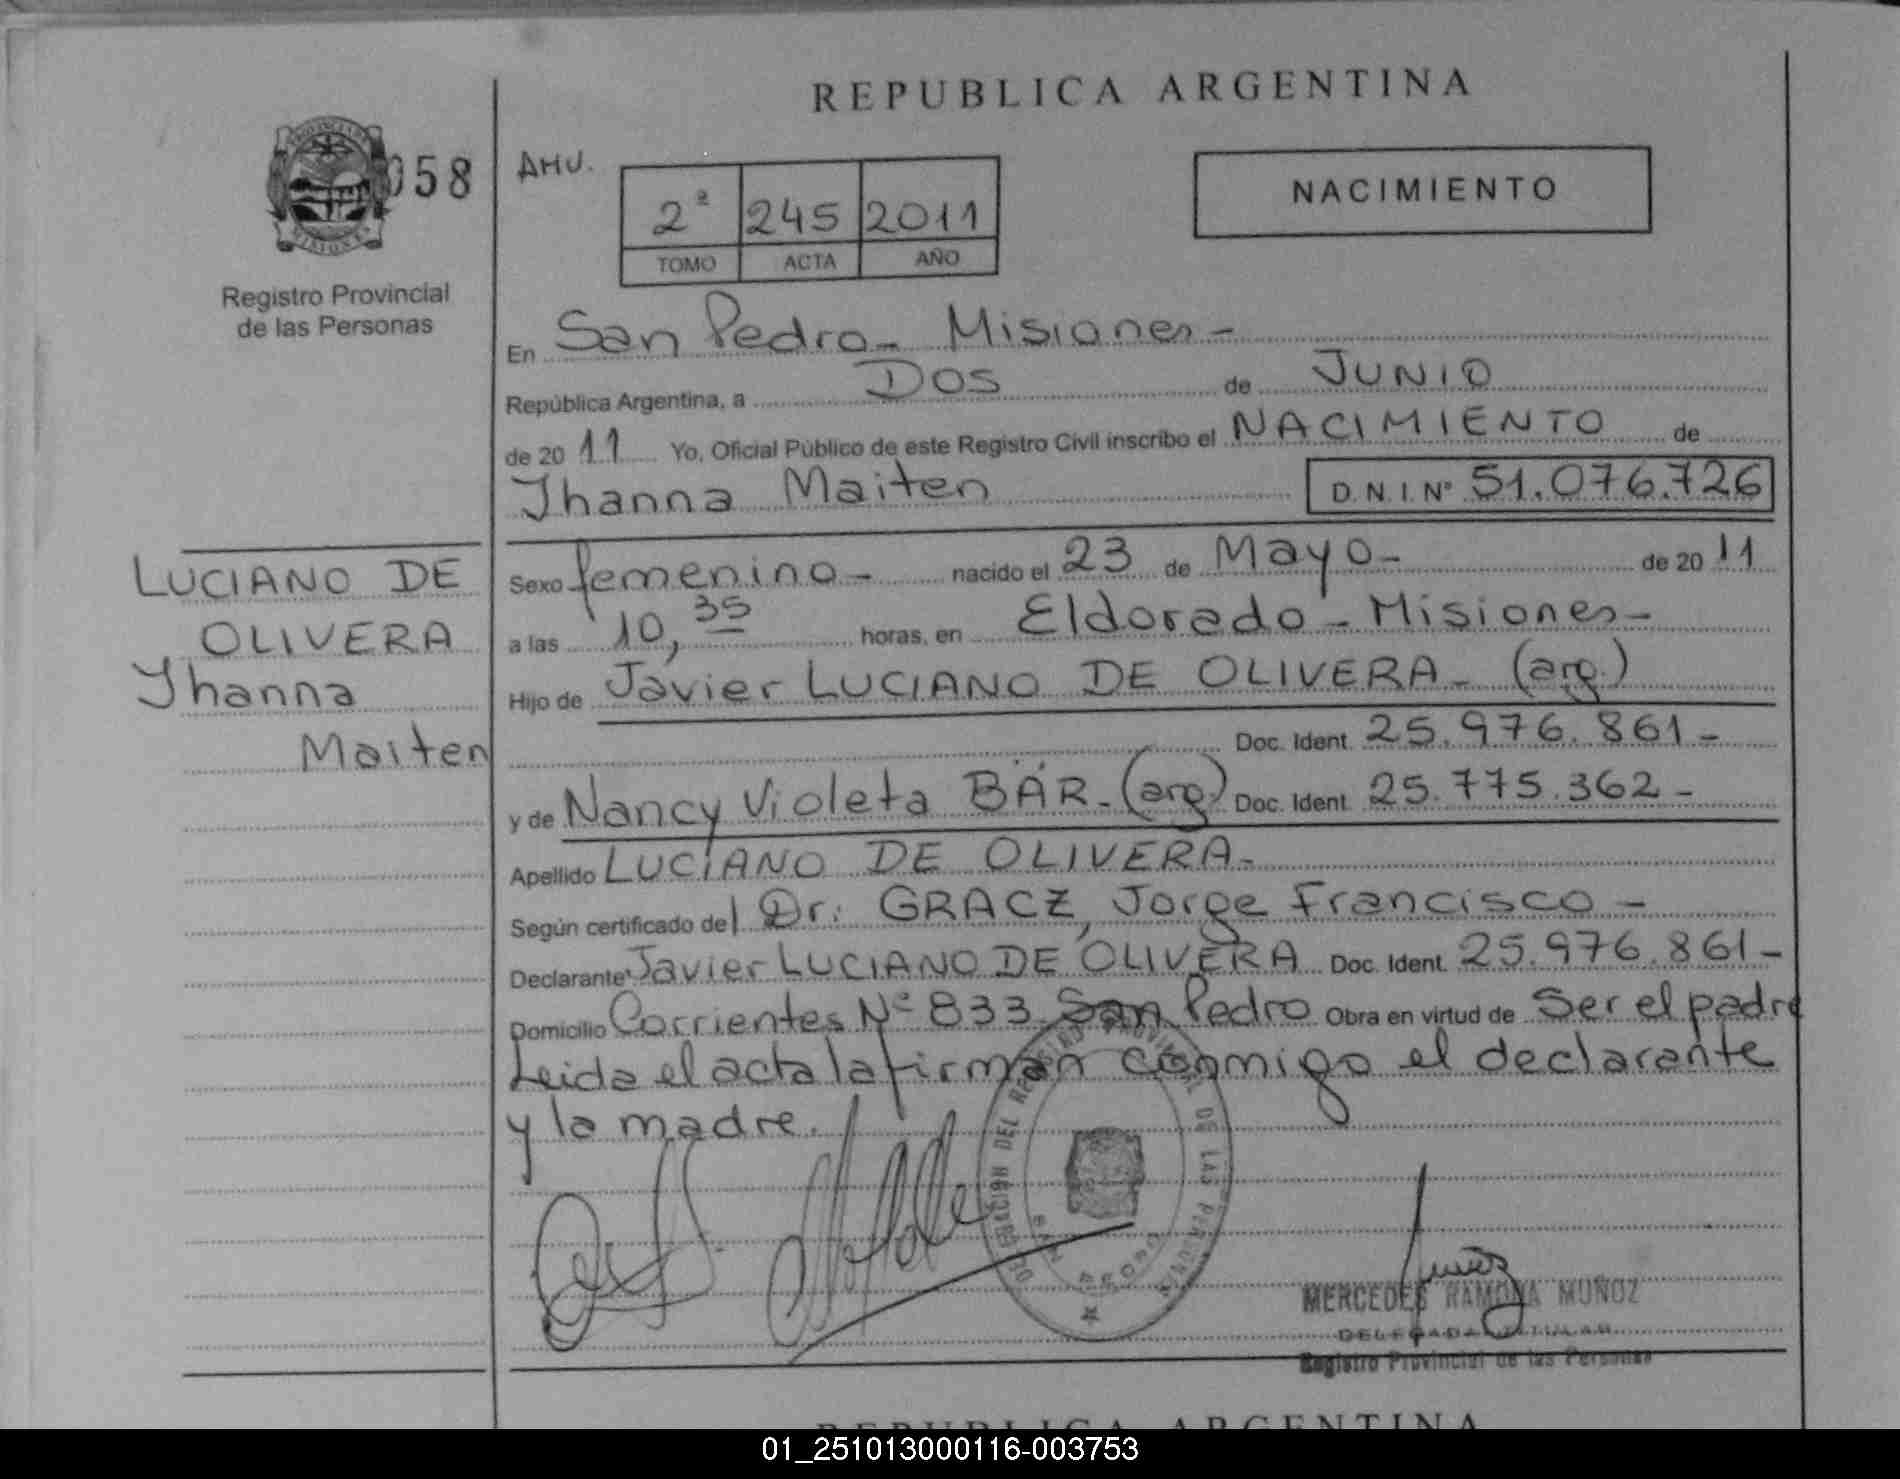 REPUBLICA ARGENTINA
058
AHU.
NACIMIENTO
2ª 245 2011
TOMO ACTA AÑO
Registro Provincial
de las Personas
En San Pedro - Misiones -
República Argentina, a DOS de JUNIO
de 2011 Yo, Oficial Público de este Registro Civil inscribo el NACIMIENTO de
Jhanna Maiten D.N.I.Nº 51.076.726
LUCIANO DE
OLIVERA
Jhanna
Maiten
Sexo femenino - nacido el 23 de Mayo - de 2011
a las 10,35 horas, en Eldorado - Misiones -
Hijo de Javier LUCIANO DE OLIVERA - (arg.)
Doc. Ident. 25.976.861 -
y de Nancy Violeta BÄR - (arg.) Doc. Ident. 25.775.362 -
Apellido LUCIANO DE OLIVERA -
Según certificado del Dr. GRACZ, Jorge Francisco -
Declarante Javier LUCIANO DE OLIVERA Doc. Ident. 25.976.861 -
Domicilio Corrientes Nº 833 San Pedro Obra en virtud de Ser el padre
Leida el acta la firman conmigo el declarante
y la madre.
DELEGACION DEL REGISTRO PROVINCIAL DE LAS PERSONAS
SAN PEDRO
MERCEDES RAMONA MUÑOZ
DELEGADA TITULAR
Registro Provincial de las Personas
REPUBLICA ARGENTINA
01_251013000116-003753